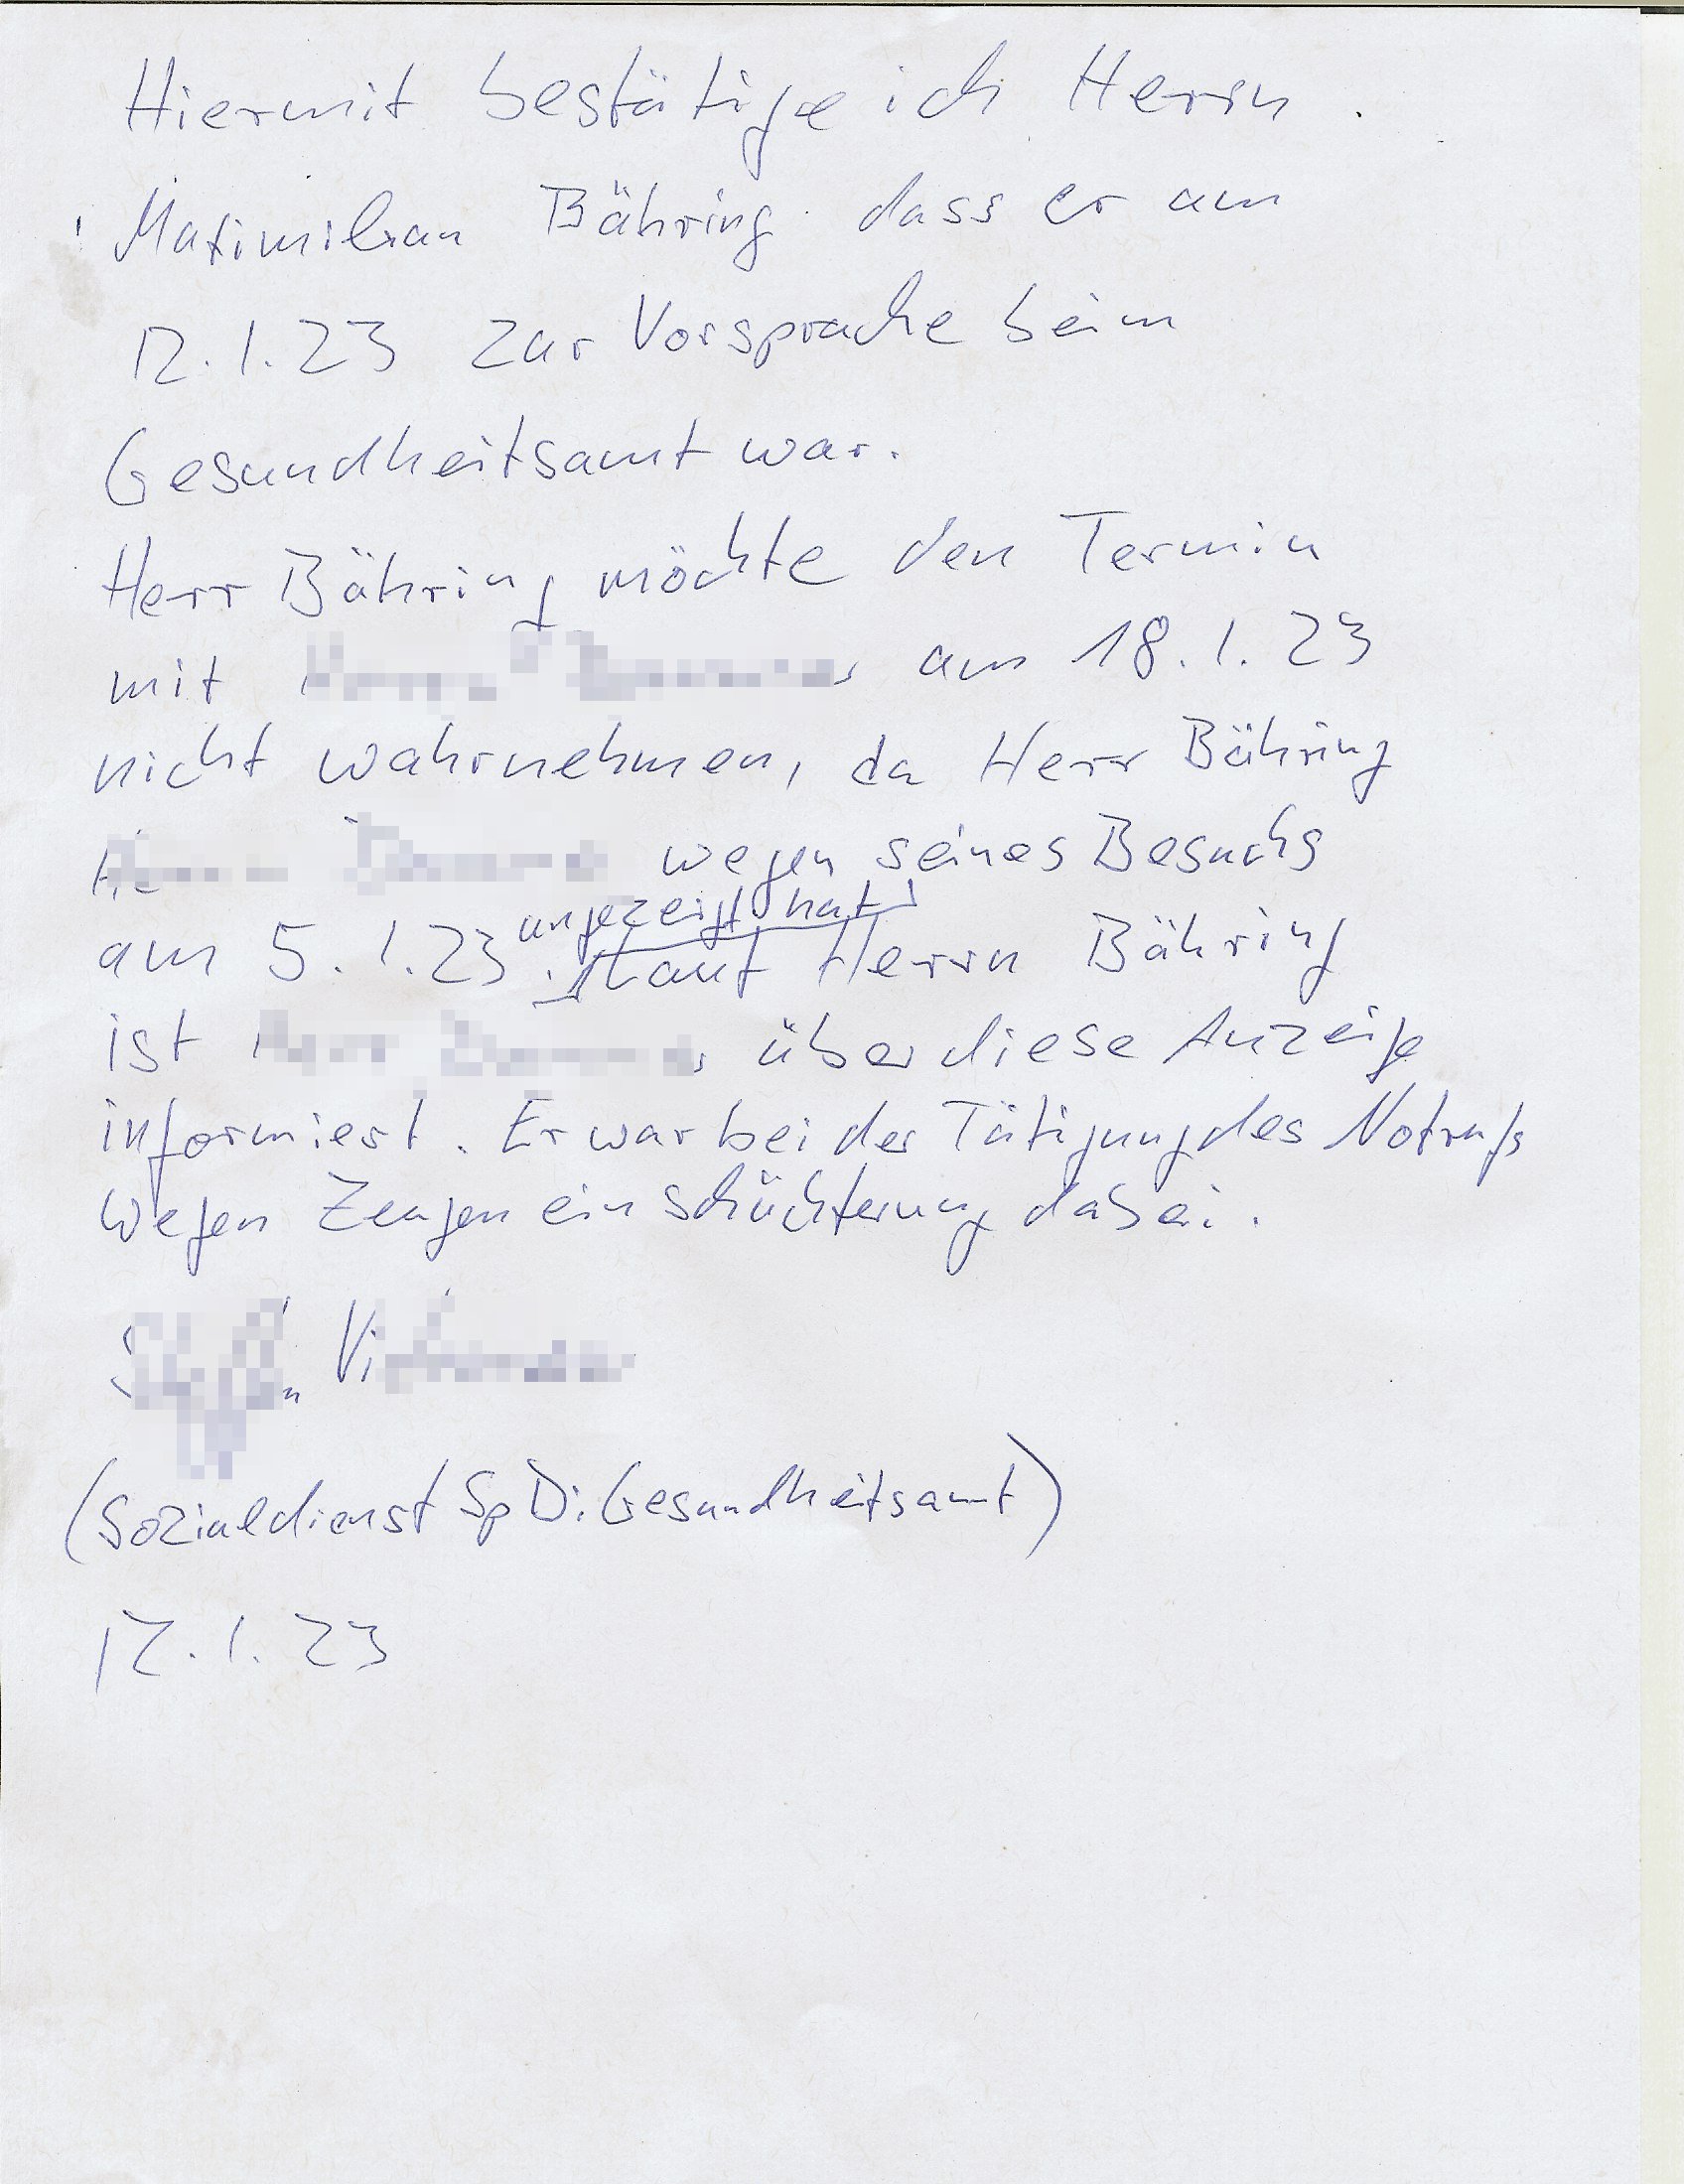 Hiermit bestätige ich Herrn
Maximilian Bähring dass er am
12.1.23 zur Vorsprache beim
Gesundheitsamt war.
Herr Bähring möchte den Termin
mit am 18.1.23
nicht wahrnehmen, da Herr Bähring
wegen seines Besuchs
angezeigt hat
am 5.1.23. laut Herrn Bähring
ist über diese Anzeige
informiert. Er war bei der Tätigung des Notrufs
wegen Zeugeneinschüchterung dabei.
(Sozialdienst SpDi Gesundheitsamt)
12.1.23